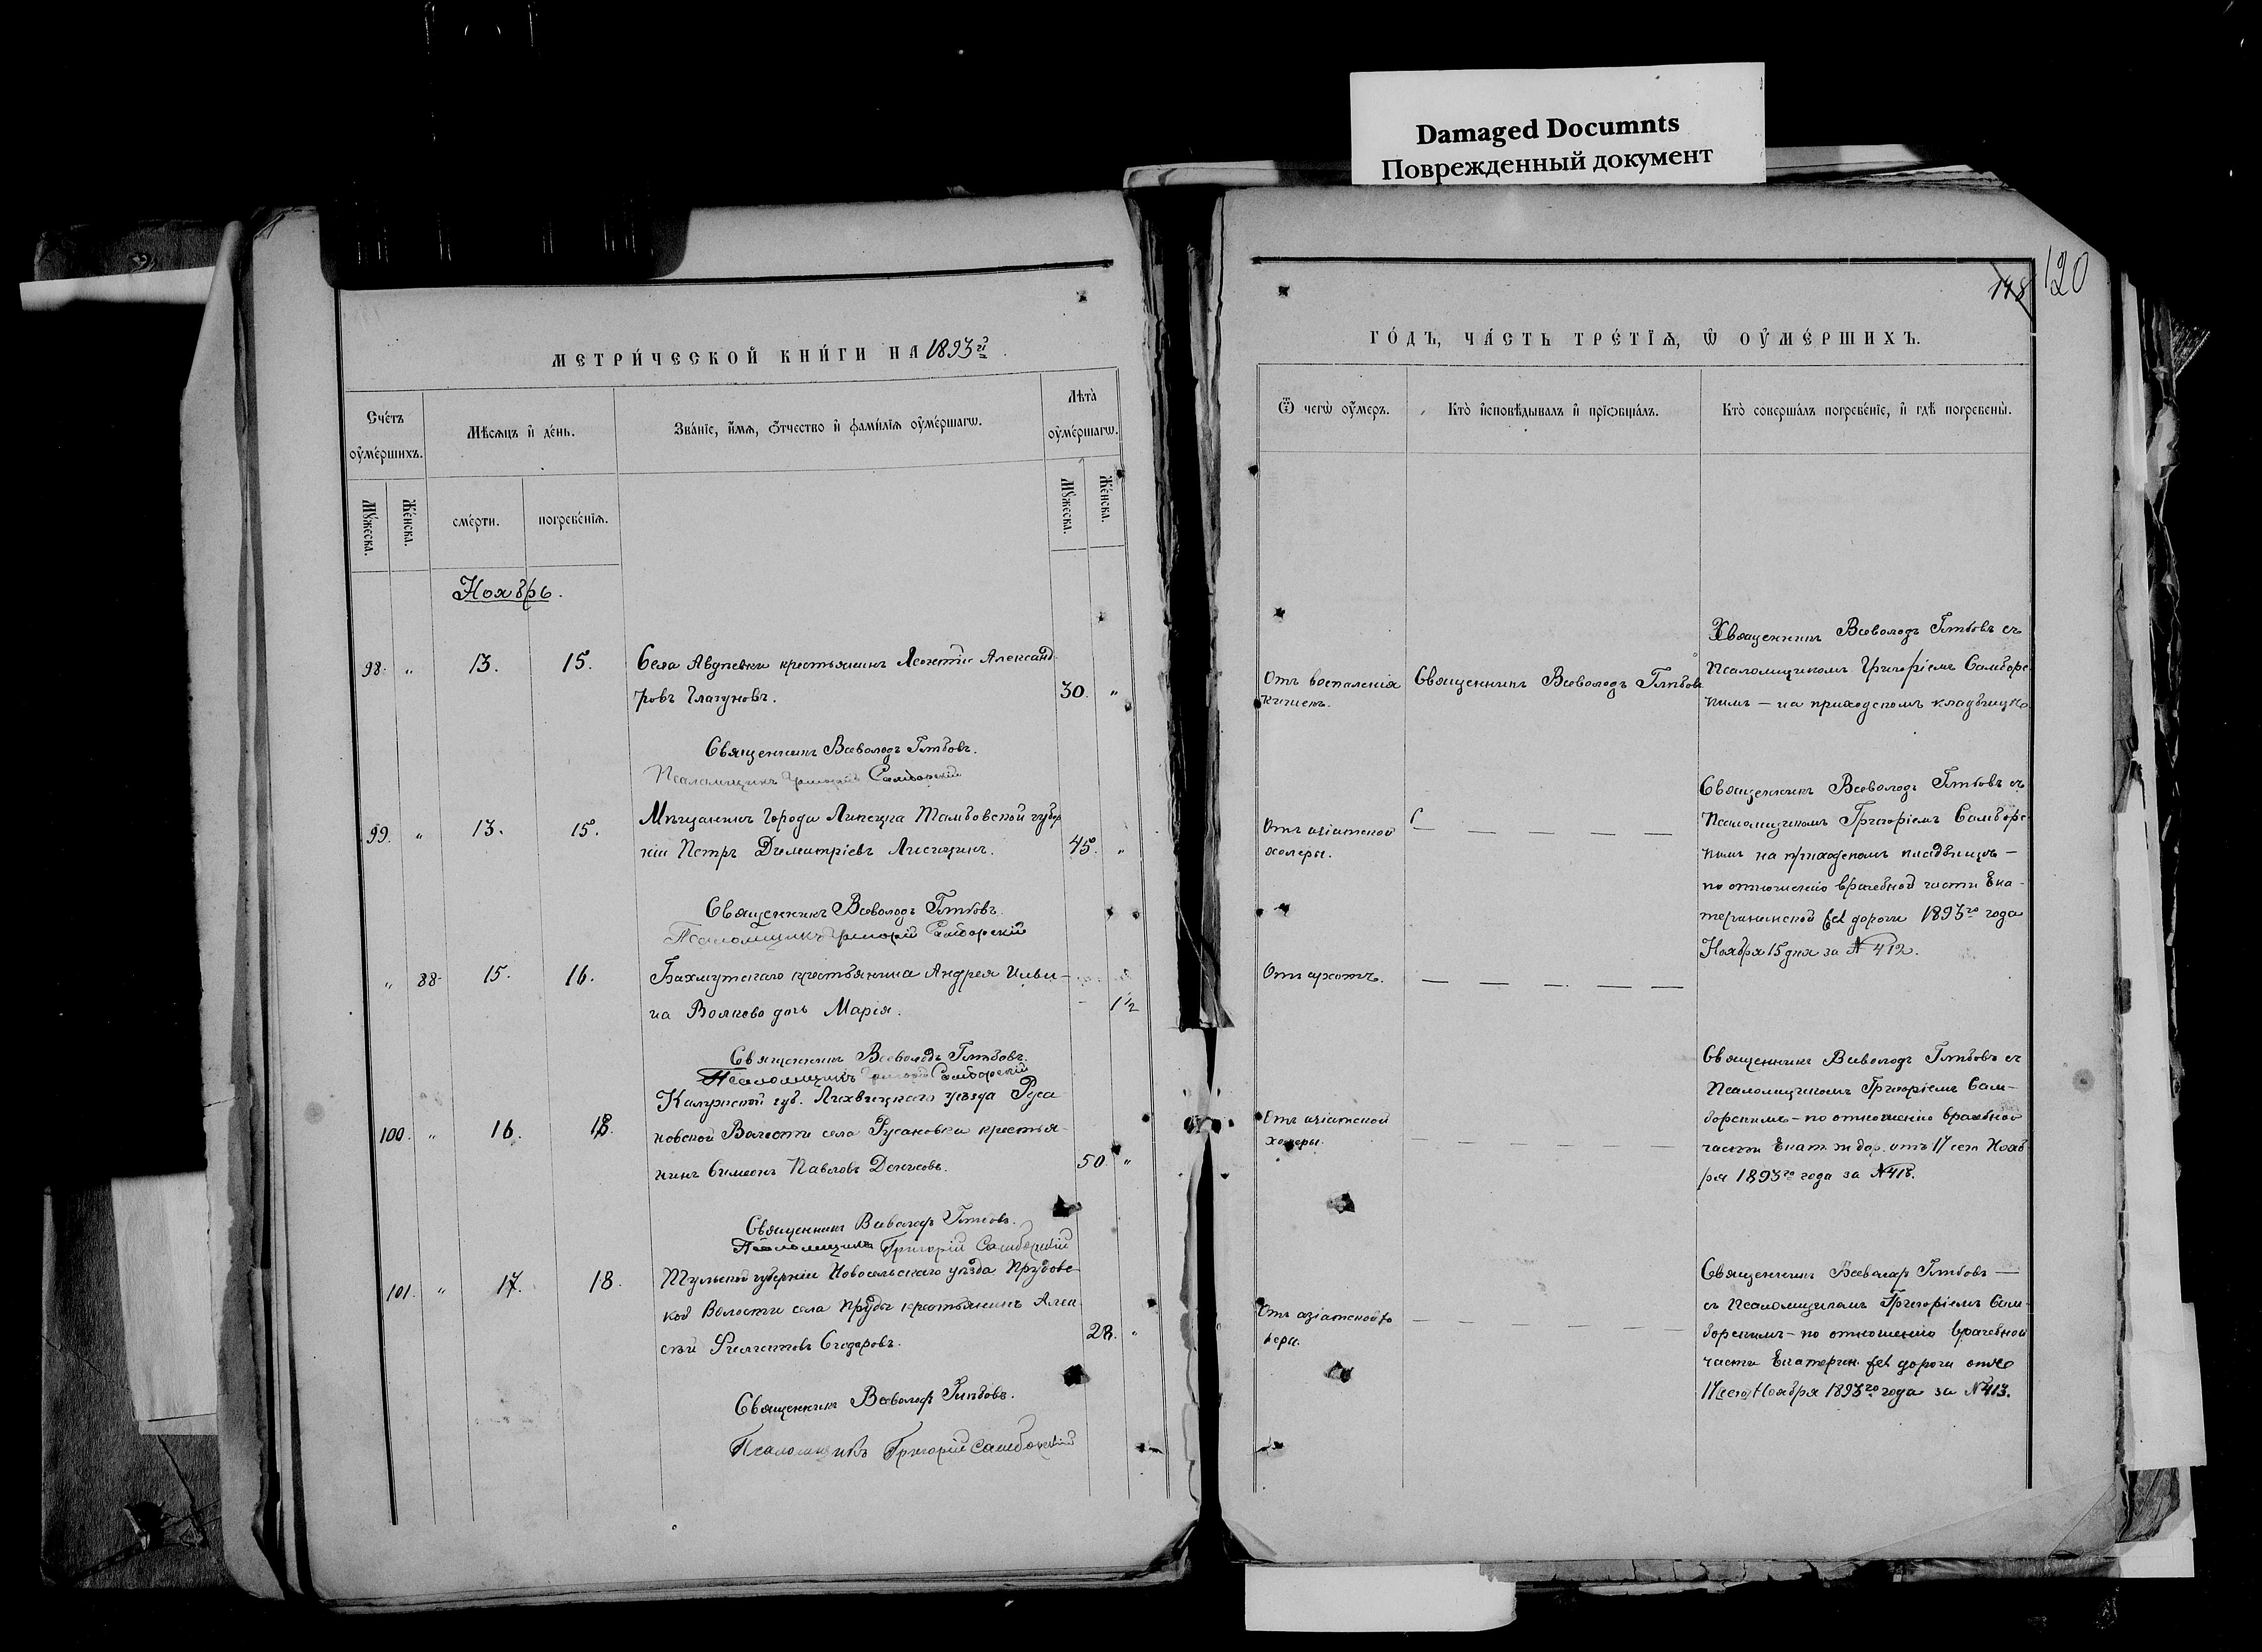 Damaged Documnts
Поврежденный документ
148
120
МЕТРИ́ЧЕСКОЙ КНИ́ГИ НА 1893й
Сче́тъ
ᲂу҆ме́ршихъ.
Мѣсѧцъ и҆ де́нь.
Зва́нїе, и҆́мѧ, ѻ҆́тчество и҆ фами́лїѧ ᲂу҆ме́ршагѡ.
Лѣта̀
ᲂу҆ме́ршагѡ.
Мꙋ́жеска.
Же́нска.
сме́рти.
погребе́нїѧ.
Мꙋ́жеска.
Же́нска.
Ноябрь.
98. " 13. 15. Села Авдѣевки крестьянинъ Леонтій Александ-
ровъ Глазуновъ. 30. "
Священникъ Всеволодъ Глѣбовъ.
Псаломщикъ Григорій Самборскій
99. " 13. 15. Мѣщанинъ города Липецка Тамбовской губер
ніи Петръ Димитріевъ Лисицинъ. 45. "
Священникъ Всеволодъ Глѣбовъ.
Псаломщикъ Григорій Самборскій
" 88 15. 16. Бахмутскаго крестьянина Андрея Ильи-
на Волкова дочь Марія. 1½
Священникъ Всеволодъ Глѣбовъ.
Псаломщикъ Григорій Самборскій
Калужской губ. Лихвинскаго уѣзда Руса
100. " 16. 18. новской Волости села Русановки крестья-
нинъ Симеонъ Павловъ Денисовъ. 50. "
Священникъ Всеволодъ Глѣбовъ.
Псаломщикъ Григорій Самборскій
101. " 17. 18. Тульской губерніи Новосельскаго уѣзда Прудовс
кой Волости села Пруды крестьянинъ Алек-
сѣй Филиповъ Сидоровъ. 28. "
Священникъ Всеволодъ Глѣбовъ.
Псаломщикъ Григорій Самборскій
ГО́ДЪ, ЧА́СТЬ ТРЕ́ТЇѦ, Ѽ ОУ҆МЕ́РШИХЪ.
Ѿ чегѡ̀ ᲂу҆́меръ.
Кто̀ и҆сповѣ́дывалъ и҆ прїѡбща́лъ.
Кто̀ соверша́лъ погребе́нїе, и҆ гдѣ̀ погребены̀.
Отъ воспаленія
кишекъ.
Священникъ Всеволодъ Глѣбовъ
Священникъ Всеволодъ Глѣбовъ съ
Псаломщикомъ Григоріемъ Самборс
кимъ — на приходскомъ кладбищѣ
Отъ азіатской
холеры.
Священникъ Всеволодъ Глѣбовъ съ
Псаломщикомъ Григоріемъ Самборс
кимъ на приходскомъ кладбищѣ —
по отношенію врачебной части Ека-
терининской жел дороги 1893го года
Ноября 15 дня за № 412.
Отъ сухотъ.
Священникъ Всеволодъ Глѣбовъ съ
Псаломщикомъ Григоріемъ Сам-
борскимъ — по отношенію врачебной
Отъ азіатской
холеры.
части Екат. ж дор. отъ 17 сего Нояб
ря 1893го года за № 413.
Священникъ Всеволодъ Глѣбовъ —
съ Псаломщикомъ Григоріемъ Сам-
борскимъ — по отношенію врачебной
Отъ азіатской хо
леры.
части Екатерин. жел дороги отъ
17 сего Ноября 1893го года за № 413.